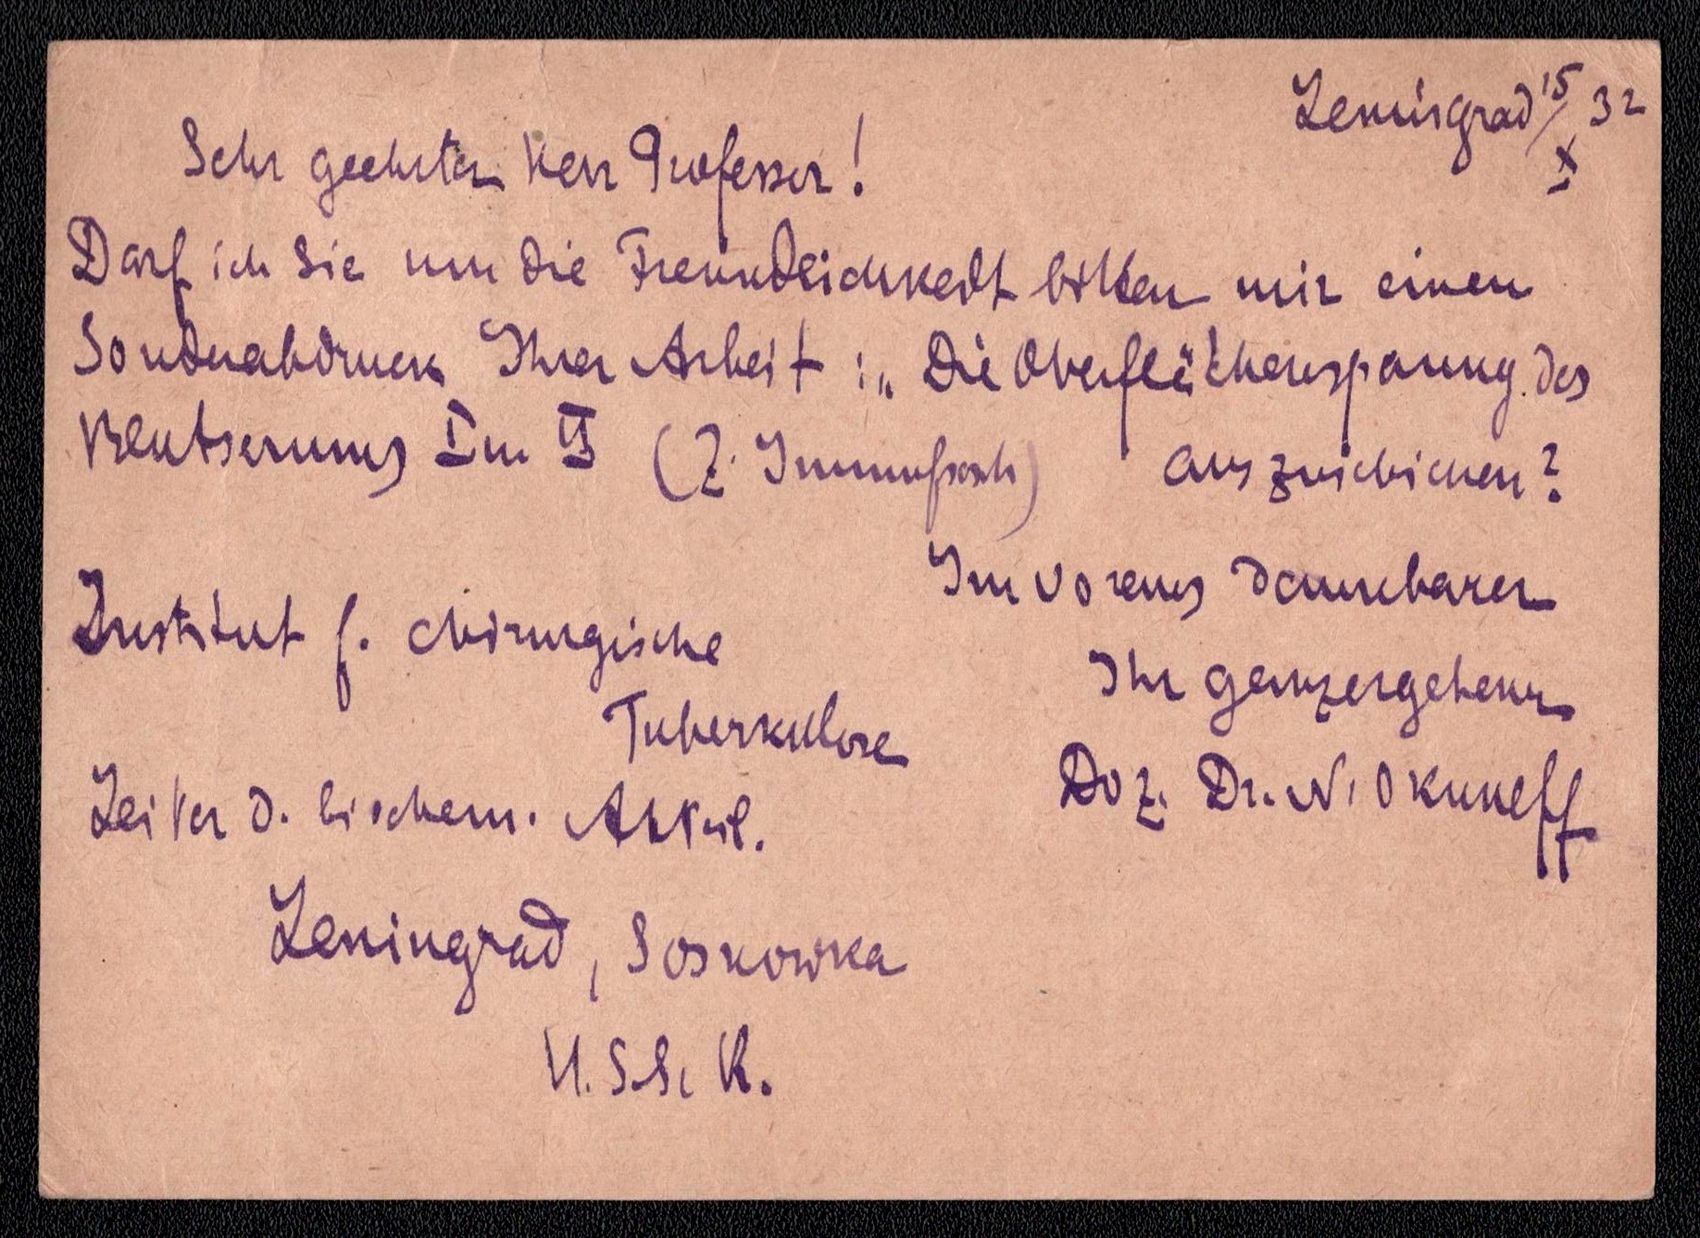 Leningrad 15/X 32
Sehr geehrter Herr Professor!
Darf ich Sie um die Freundlichkeit bitten mir einen
Sonderabdruck Ihrer Arbeit: „Die Oberflächenspanung des
Blutserums I u. II (Z. Immunforsch) auszuschicken?
Im voraus dankbarer
Ihr ganzergebener
Doz. Dr. N. Okuneff
Institut f. chirurgische
Tuberkulose
Leiter d. biochem. Abteil.
Leningrad, Sosnowka
U.S.S.R.